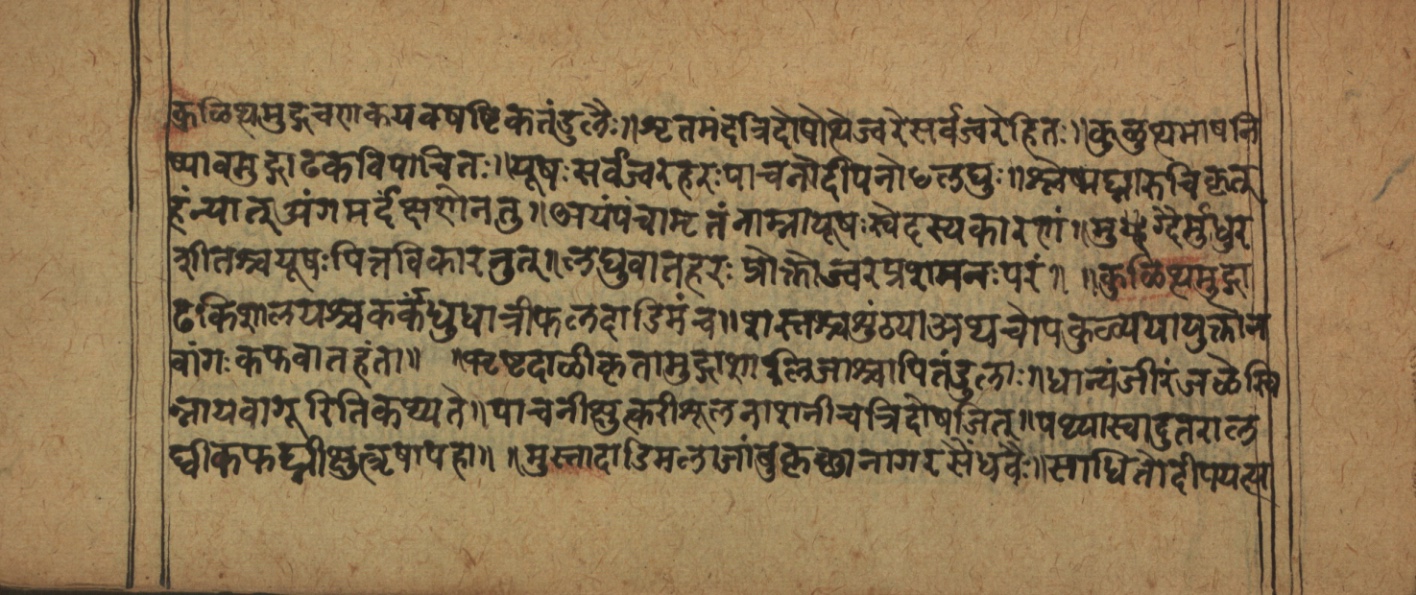 कळिथ्थमुद्गचणकयवषष्टिकतंडुलैः॥शृतमंदत्रिदोषोत्थेज्वरेसर्वज्वरेहितः॥कुळथ्थमाषनि
ष्पावमुद्गाढकविपाचितः॥यूषःसर्वज्वरहरःपाचनोदीपनोलघुः॥श्लेष्मघ्नारुचिकृत्तृ
हंन्यात्अंगमर्दंक्षणेनतु॥अयंपंचामृतंनाम्नायूषःस्वेदस्यकारणं॥मुद्गैर्मधुर
शीतश्चयूषःपित्तविकारनुत्॥लघुवातहरःप्रोक्तोज्वरप्रशमनःपरं॥ ॥कुळिथ्थमुद्गा
ढकिशालयश्चकर्कंधुधात्रीफलदाडिमंच॥शस्तश्चशुंठ्याअथचोपकुल्ययायुक्तोन
वांगःकफवातहंता॥ ॥भृष्टदाळीकृतामुद्गाशालिजाश्चापितंडुलाः॥धान्यंजीरंजळेस्वि
न्नायवागूरितिकथ्यते॥पाचनीक्षुत्करीशूलनाशनीचत्रिदोषजित्॥पथ्यास्वादुतराल
घ्वीकफघ्नीक्षुत्तृषापहा॥ ॥मुस्तादाडिमलाजांबुकृच्छानागरसैंधवैः॥साधितोदीपयत्या